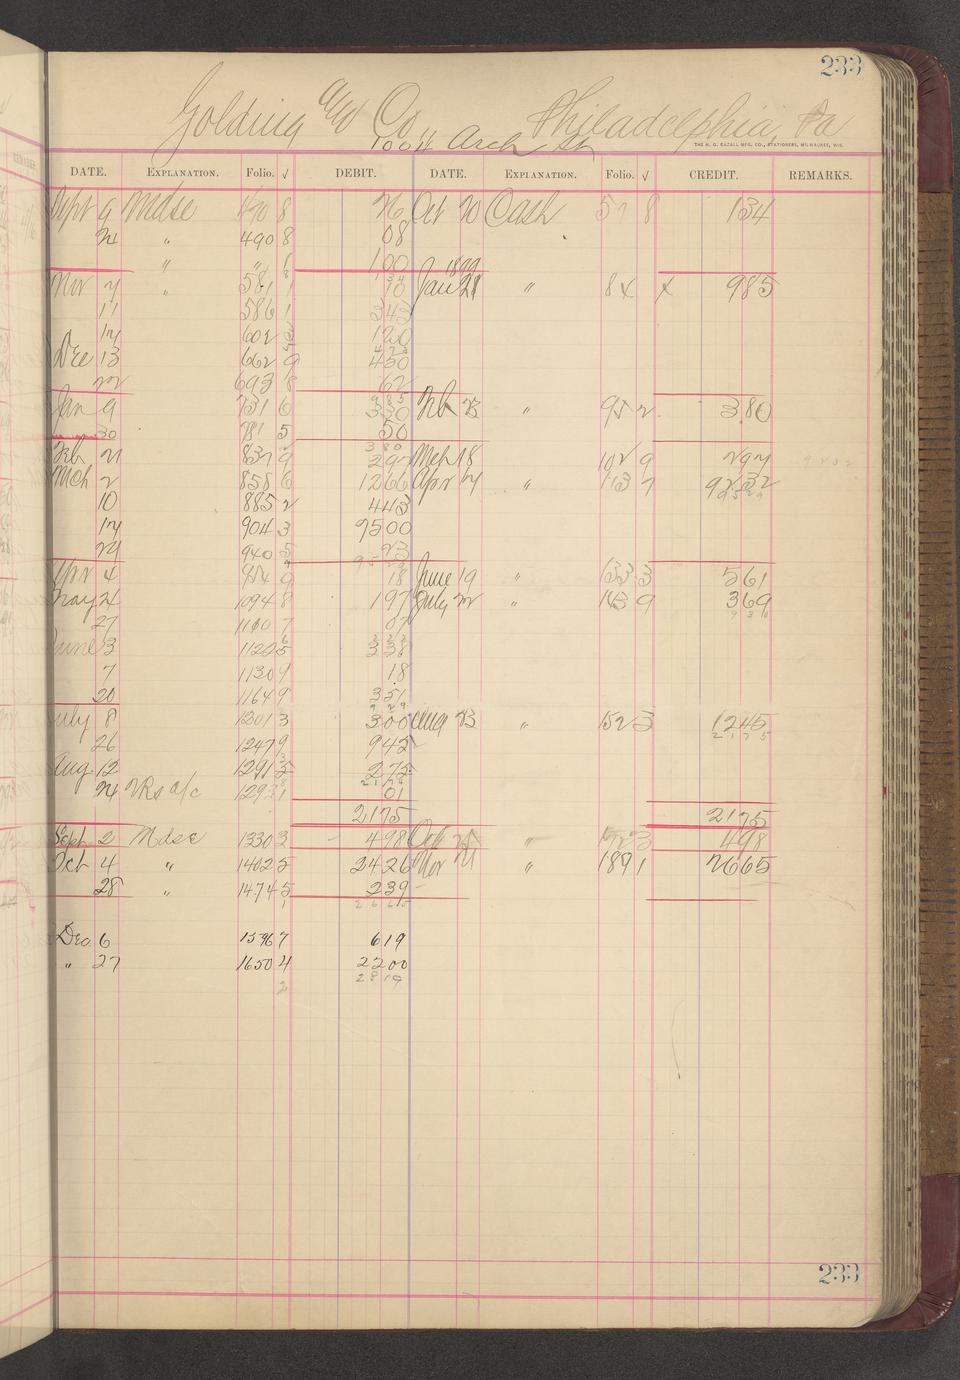 233
Golding and Co. Philadelphia, Pa
1004 Arch St
THE H. G. RAZALL MFG. CO., STATIONERS, MILWAUKEE, WIS.
DATE. EXPLANATION. Folio. √ DEBIT. DATE. EXPLANATION. Folio. √ CREDIT. REMARKS.
Sept 9 Mdse 8 26 Oct 20 Cash 57 8 134
24 " 490 8 08
" " 100
1899
Nov 7 " 581 1 10 Jan 21 " 84 X 985
11 586 1 343
17 602 120
Dec 13 662 9 450
22 693 8 62
985
Jan 9 731 6 330 Feb 23 " 952 380
30 781 5 50
380
Feb 21 837 9 297 Mch 18 102 9 297
Mch 2 858 6 1266 Apr 7 " 113 7 9232
10 885 2 443
17 904 3 7500
24 940 5 23
Apr 4 954 9 18 June 19 " 133 3 561
May 24 1094 8 197 July 22 " 143 9 369
930
27 1100 7 07
June 3 1120 5 338
7 1130 9 18
20 1164 9 351
929
July 8 1201 3 300 Aug 23 " 152 3 1245
2175
26 1247 9 945
Aug 12 1291 5 275
24 VRs a/c 1293 1 01
2175 2175
Sept 2 Mdse 1330 3 498 Oct 25 " 172 3 498
Oct 4 " 1402 5 2426 Nov 21 " 189 1 2665
28 " 1474 5 239
2665
Dec 6 1596 7 619
" 27 1650 4 2200
2819
2
233